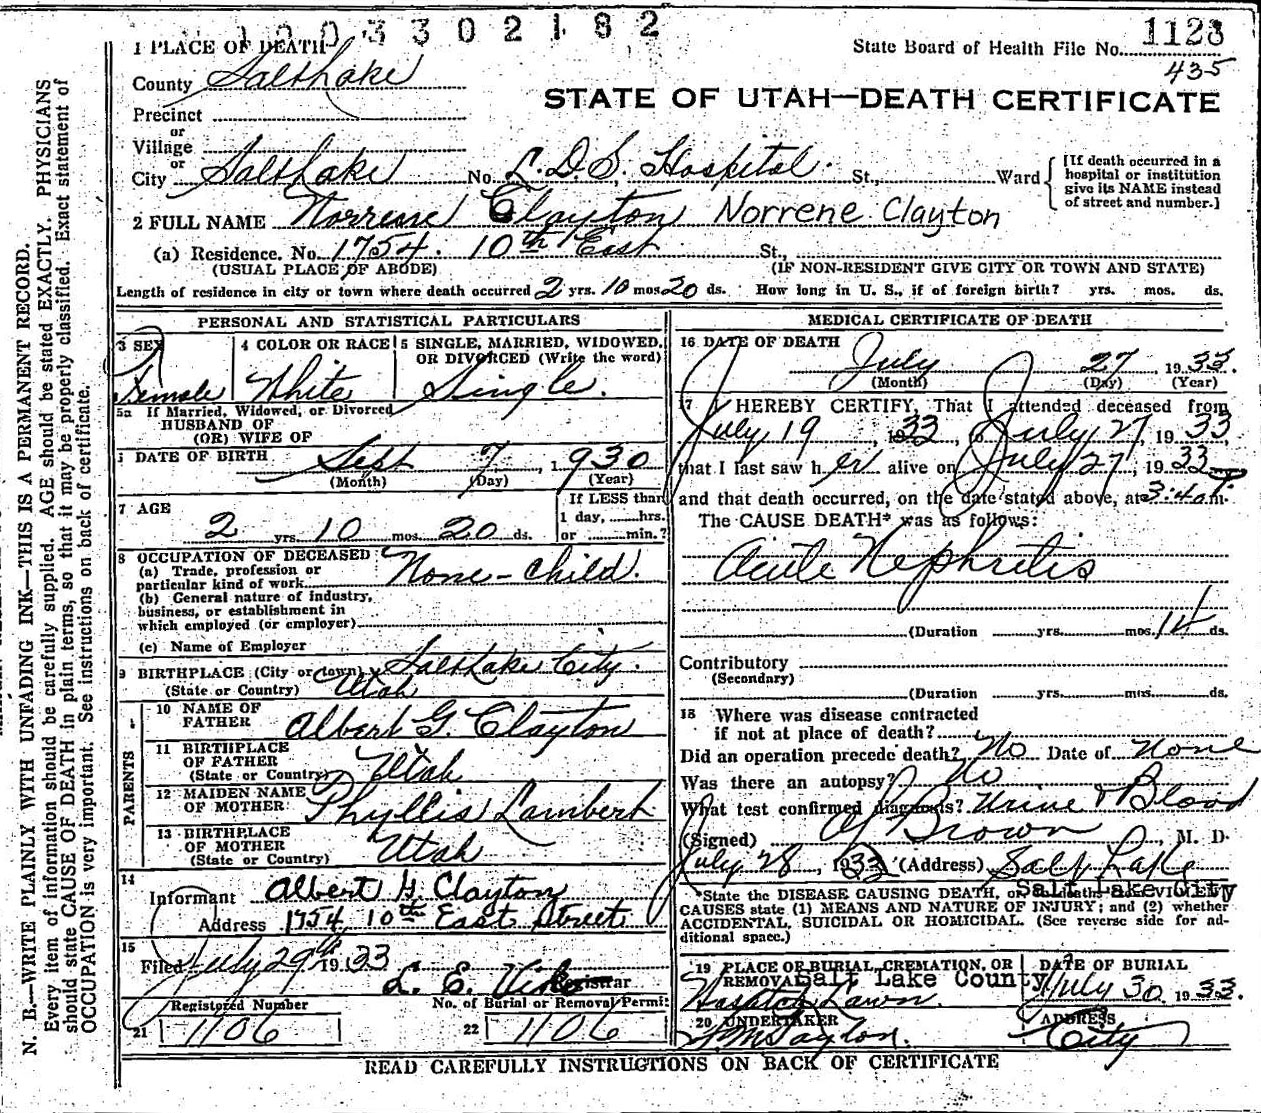 1003302182
1 PLACE OF DEATH
State Board of Health File No. 1128
435
County Salt Lake
STATE OF UTAH—DEATH CERTIFICATE
Precinct
or
Village
or
City Salt Lake No. L.D.S. Hospital. St., Ward
[If death occurred in a
hospital or institution
give its NAME instead
of street and number.]
2 FULL NAME Norrene Clayton Norrene Clayton
(a) Residence. No. 1754. 10th East St.,
(USUAL PLACE OF ABODE) (IF NON-RESIDENT GIVE CITY OR TOWN AND STATE)
Length of residence in city or town where death occurred 2 yrs. 10 mos. 20 ds. How long in U. S., if of foreign birth? yrs. mos. ds.
PERSONAL AND STATISTICAL PARTICULARS
3 SEX
Female
4 COLOR OR RACE
White
5 SINGLE, MARRIED, WIDOWED,
OR DIVORCED (Write the word)
Single.
5a If Married, Widowed, or Divorced
HUSBAND OF
(OR) WIFE OF
6 DATE OF BIRTH Sept 7, 1930
(Month) (Day) (Year)
7 AGE
2 yrs. 10 mos. 20 ds.
If LESS than
1 day, ......hrs.
or ......min.?
8 OCCUPATION OF DECEASED
(a) Trade, profession or
particular kind of work None - child.
(b) General nature of industry,
business, or establishment in
which employed (or employer)
(c) Name of Employer
9 BIRTHPLACE (City or town) Salt Lake City.
(State or Country) Utah
PARENTS
10 NAME OF
FATHER Albert G. Clayton
11 BIRTHPLACE
OF FATHER
(State or Country) Utah
12 MAIDEN NAME
OF MOTHER Phyllis Lambert
13 BIRTHPLACE
OF MOTHER
(State or Country) Utah
14
Informant Albert G. Clayton
Address 1754 10th East Street
15
Filed July 29th 1933
L. E. Registrar
Registered Number
21 1106
No. of Burial or Removal Permit
22 1106
MEDICAL CERTIFICATE OF DEATH
16 DATE OF DEATH
July 27 1933.
(Month) (Day) (Year)
17 I HEREBY CERTIFY, That I attended deceased from
July 19, 1933, to July 27, 1933,
that I last saw her alive on July 27, 1933
and that death occurred, on the date stated above, at 3:40 m.
The CAUSE DEATH* was as follows:
Acute Nephritis
(Duration yrs. mos. 14 ds.
Contributory
(Secondary)
(Duration yrs. mos. ds.
18 Where was disease contracted
if not at place of death?
Did an operation precede death? No Date of None
Was there an autopsy? No
What test confirmed diagnosis? Urine & Blood
(Signed) Brown, M. D.
July 28, 1933 (Address) Salt Lake
Salt Lake City
*State the DISEASE CAUSING DEATH, or in deaths from VIOLENT
CAUSES state (1) MEANS AND NATURE OF INJURY; and (2) whether
ACCIDENTAL, SUICIDAL OR HOMICIDAL. (See reverse side for ad-
ditional space.)
19 PLACE OF BURIAL, CREMATION, OR
REMOVAL Salt Lake County
Wasatch Lawn.
DATE OF BURIAL
July 30 1933.
20 UNDERTAKER
ADDRESS
City
READ CAREFULLY INSTRUCTIONS ON BACK OF CERTIFICATE
N. B.—WRITE PLAINLY WITH UNFADING INK—THIS IS A PERMANENT RECORD.
Every item of information should be carefully supplied. AGE should be stated EXACTLY. PHYSICIANS
should state CAUSE OF DEATH in plain terms, so that it may be properly classified. Exact statement of
OCCUPATION is very important. See instructions on back of certificate.